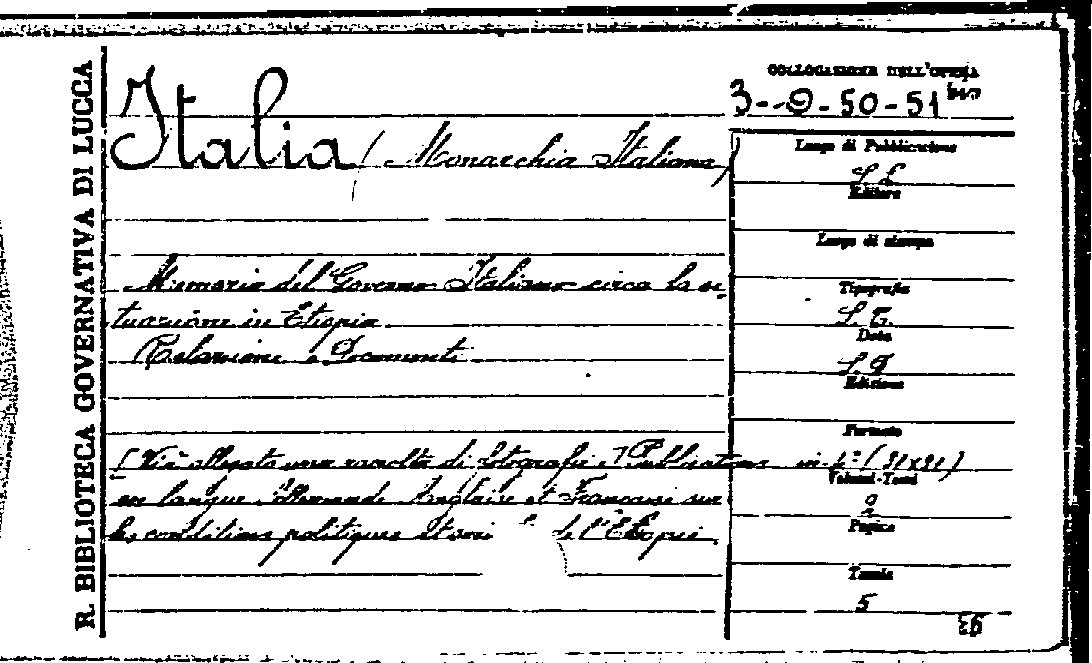 R. BIBLIOTECA GOVERNATIVA DI LUCCA
Italia (Monarchia Italiana)
Memoria del Governo Italiano circa la si-
tuazione in Etiopia
Relazione e Documenti
(Vi è allegato una raccolta di fotografie e Publications
en langue Allemande Anglaise et Française sur
les conditions politiques et de l'Etiopie
COLLOCAZIONE DELL'OPERA
3--9-50-51
Luogo di Pubblicazione
S. L.
Editore
Luogo di stampa
Tipografia
S. T.
Data
S. D.
Edizione
Formato
in 4° (31x21)
Volumi-Tomi
2
Pagine
Tavole
5